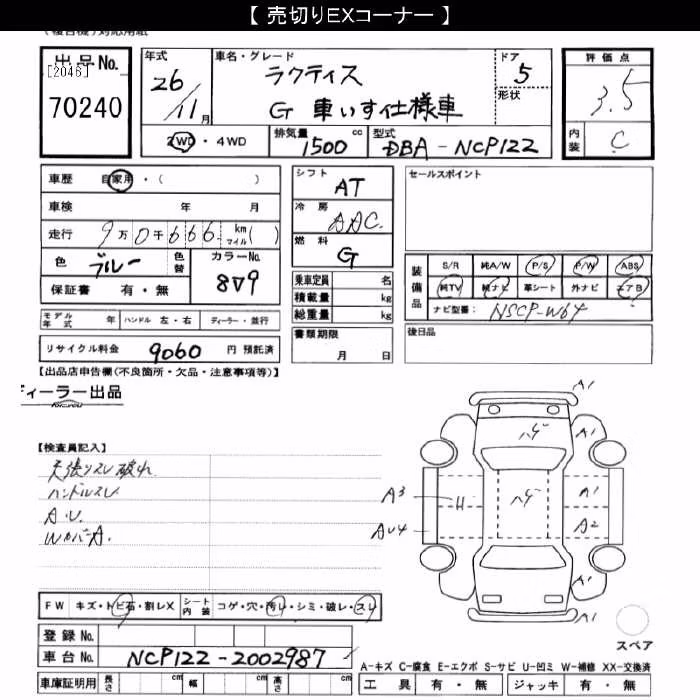 【 売切りEXコーナー 】
出品No.
[2046]
70240
年式
26/11月
車名・グレード
ラクティス
G 車いす仕様車
ドア
5
形状
評価点
3.5
内装
C
2WD・4WD
排気量
1500 cc
型式
DBA-NCP122
車歴 自家用・( )
車検 年 月
走行 9万0千666 km マイル( )
色 ブルー 色替
カラーNo.
8▽9
保証書 有・無
シフト
AT
冷房
AAC.
燃料
G
乗車定員 名
積載量 kg
総重量 kg
セールスポイント
装備品
S/R 純A/W P/S P/W ABS
純TV 純ナビ 革シート 外ナビ エアB
ナビ型番: NSCP-W64
モデル年式 年 ハンドル 左・右 ディーラー・並行
リサイクル料金 9060 円 預託済
書類期限
月 日
後日品
【出品店申告欄(不良箇所・欠品・注意事項等)】
ディーラー出品
【検査員記入】
天張りスレ破れ
ハンドルスレ
A・U
WカバーA.
A1
ハゲ
A1
A3
H
ハゲ
A1
AU4
A2
A1
A1
スペア
FW キズ・トビ石・割レX シート内装 コゲ・穴・汚レ・シミ・破レ・スレ
登録No.
車台No. NCP122-2002987
A-キズ C-腐食 E-エクボ S-サビ U-凹ミ W-補修 XX-交換済
車庫証明用 長さ cm 幅 cm 高さ cm
工具 有・無 ジャッキ 有・無